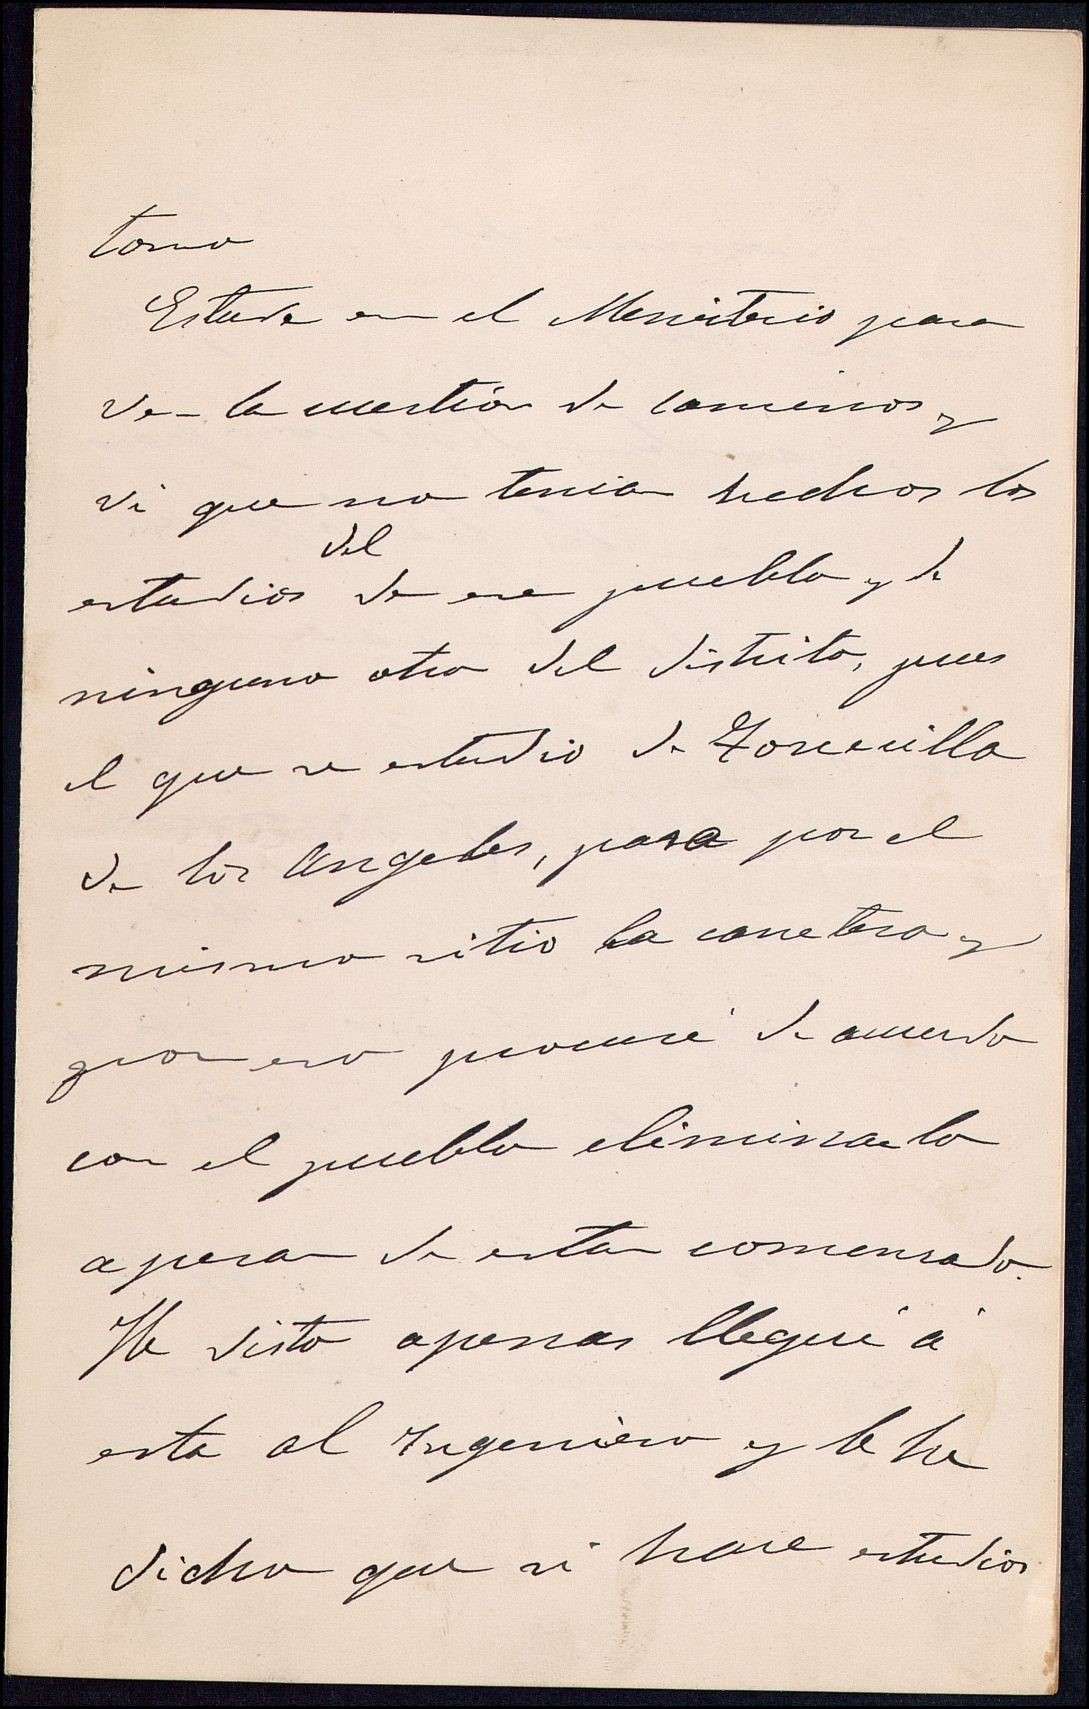 torno
Estuve en el Ministerio para
ver la cuestión de caminos y
vi que no tenia hechos los
del
estudios de ese pueblo y de
ninguno otro del distrito, pues
el que se estudio de Torrecilla
de los Angeles, pasa por el
mismo sitio la carretera y
por eso procuré de acuerdo
con el pueblo eliminarlo
apesar de estar comenzado.
He visto apenas llegué á
esta al Ingeniero y le he
dicho que si hace estudios